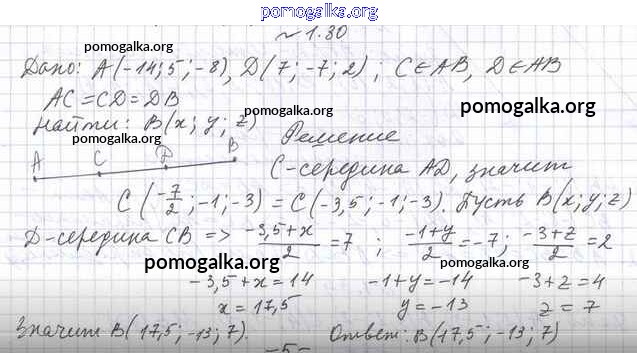 pomogalka.org
№ 1.30
pomogalka.org
Дано: A(-14; 5; -8), D(7; -7; 2); C∈AB, D∈AB
AC = CD = DB
pomogalka.org
pomogalka.org
Найти: B(x; y; z)
pomogalka.org
Решение
A C D B
C-середина AD, значит
C(-7/2; -1; -3) = C(-3,5; -1; -3). Пусть B(x; y; z)
D-середина CB => (-3,5+x)/2 = 7 ; (-1+y)/2 = -7; (-3+z)/2 = 2
pomogalka.org
pomogalka.org
pomogalka.org
-3,5+x = 14 -1+y = -14 -3+z = 4
x = 17,5 y = -13 z = 7
Значит B(17,5; -13; 7). Ответ: B(17,5; -13; 7)
pomogalka.org
-5-